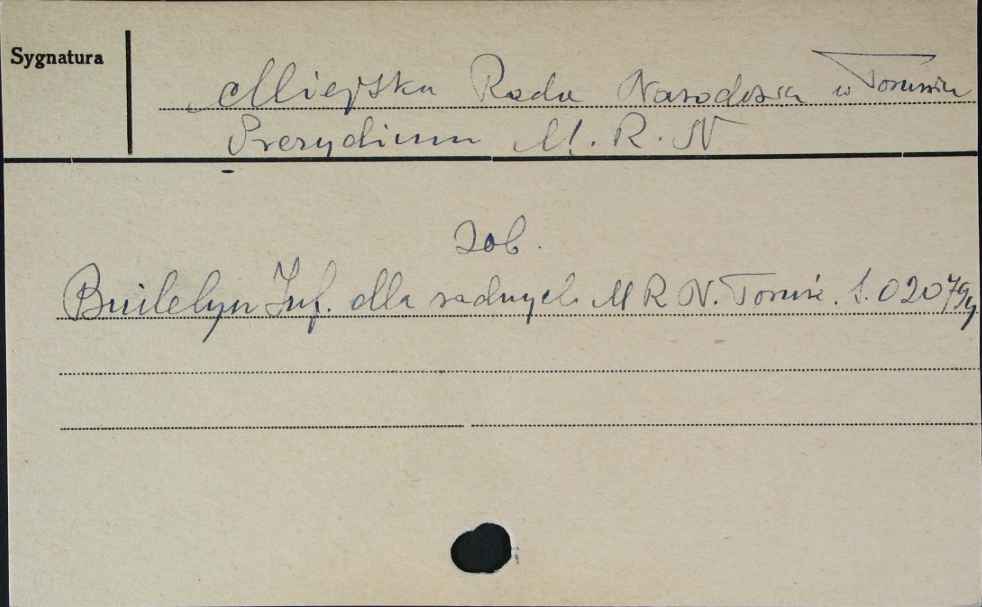 Sygnatura
Miejska Rada Narodowa w Toruniu
Prezydium M. R. N
Zob.
Biuletyn Inf. dla radnych M R N. Toruń.